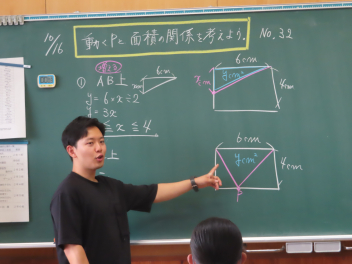 10/16
動くPと面積の関係を考えよう。
No.32
増える
① AB上
6cm
y=6×x÷2
y=3x
≦x≦4
上
6cm
xcm
ycm²
4cm
6cm
ycm²
4cm
P